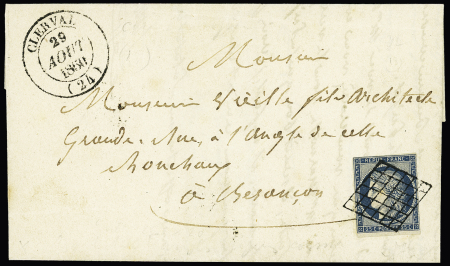 CLERVAL
29
AOUT
1850
(24)
Monsieur
Monsieur Vieille fils Architecte
Grande-Rue, à l'Angle de celle
Ronchaux
à Besançon
REPUB. FRANC.
25 C POSTES 25 C